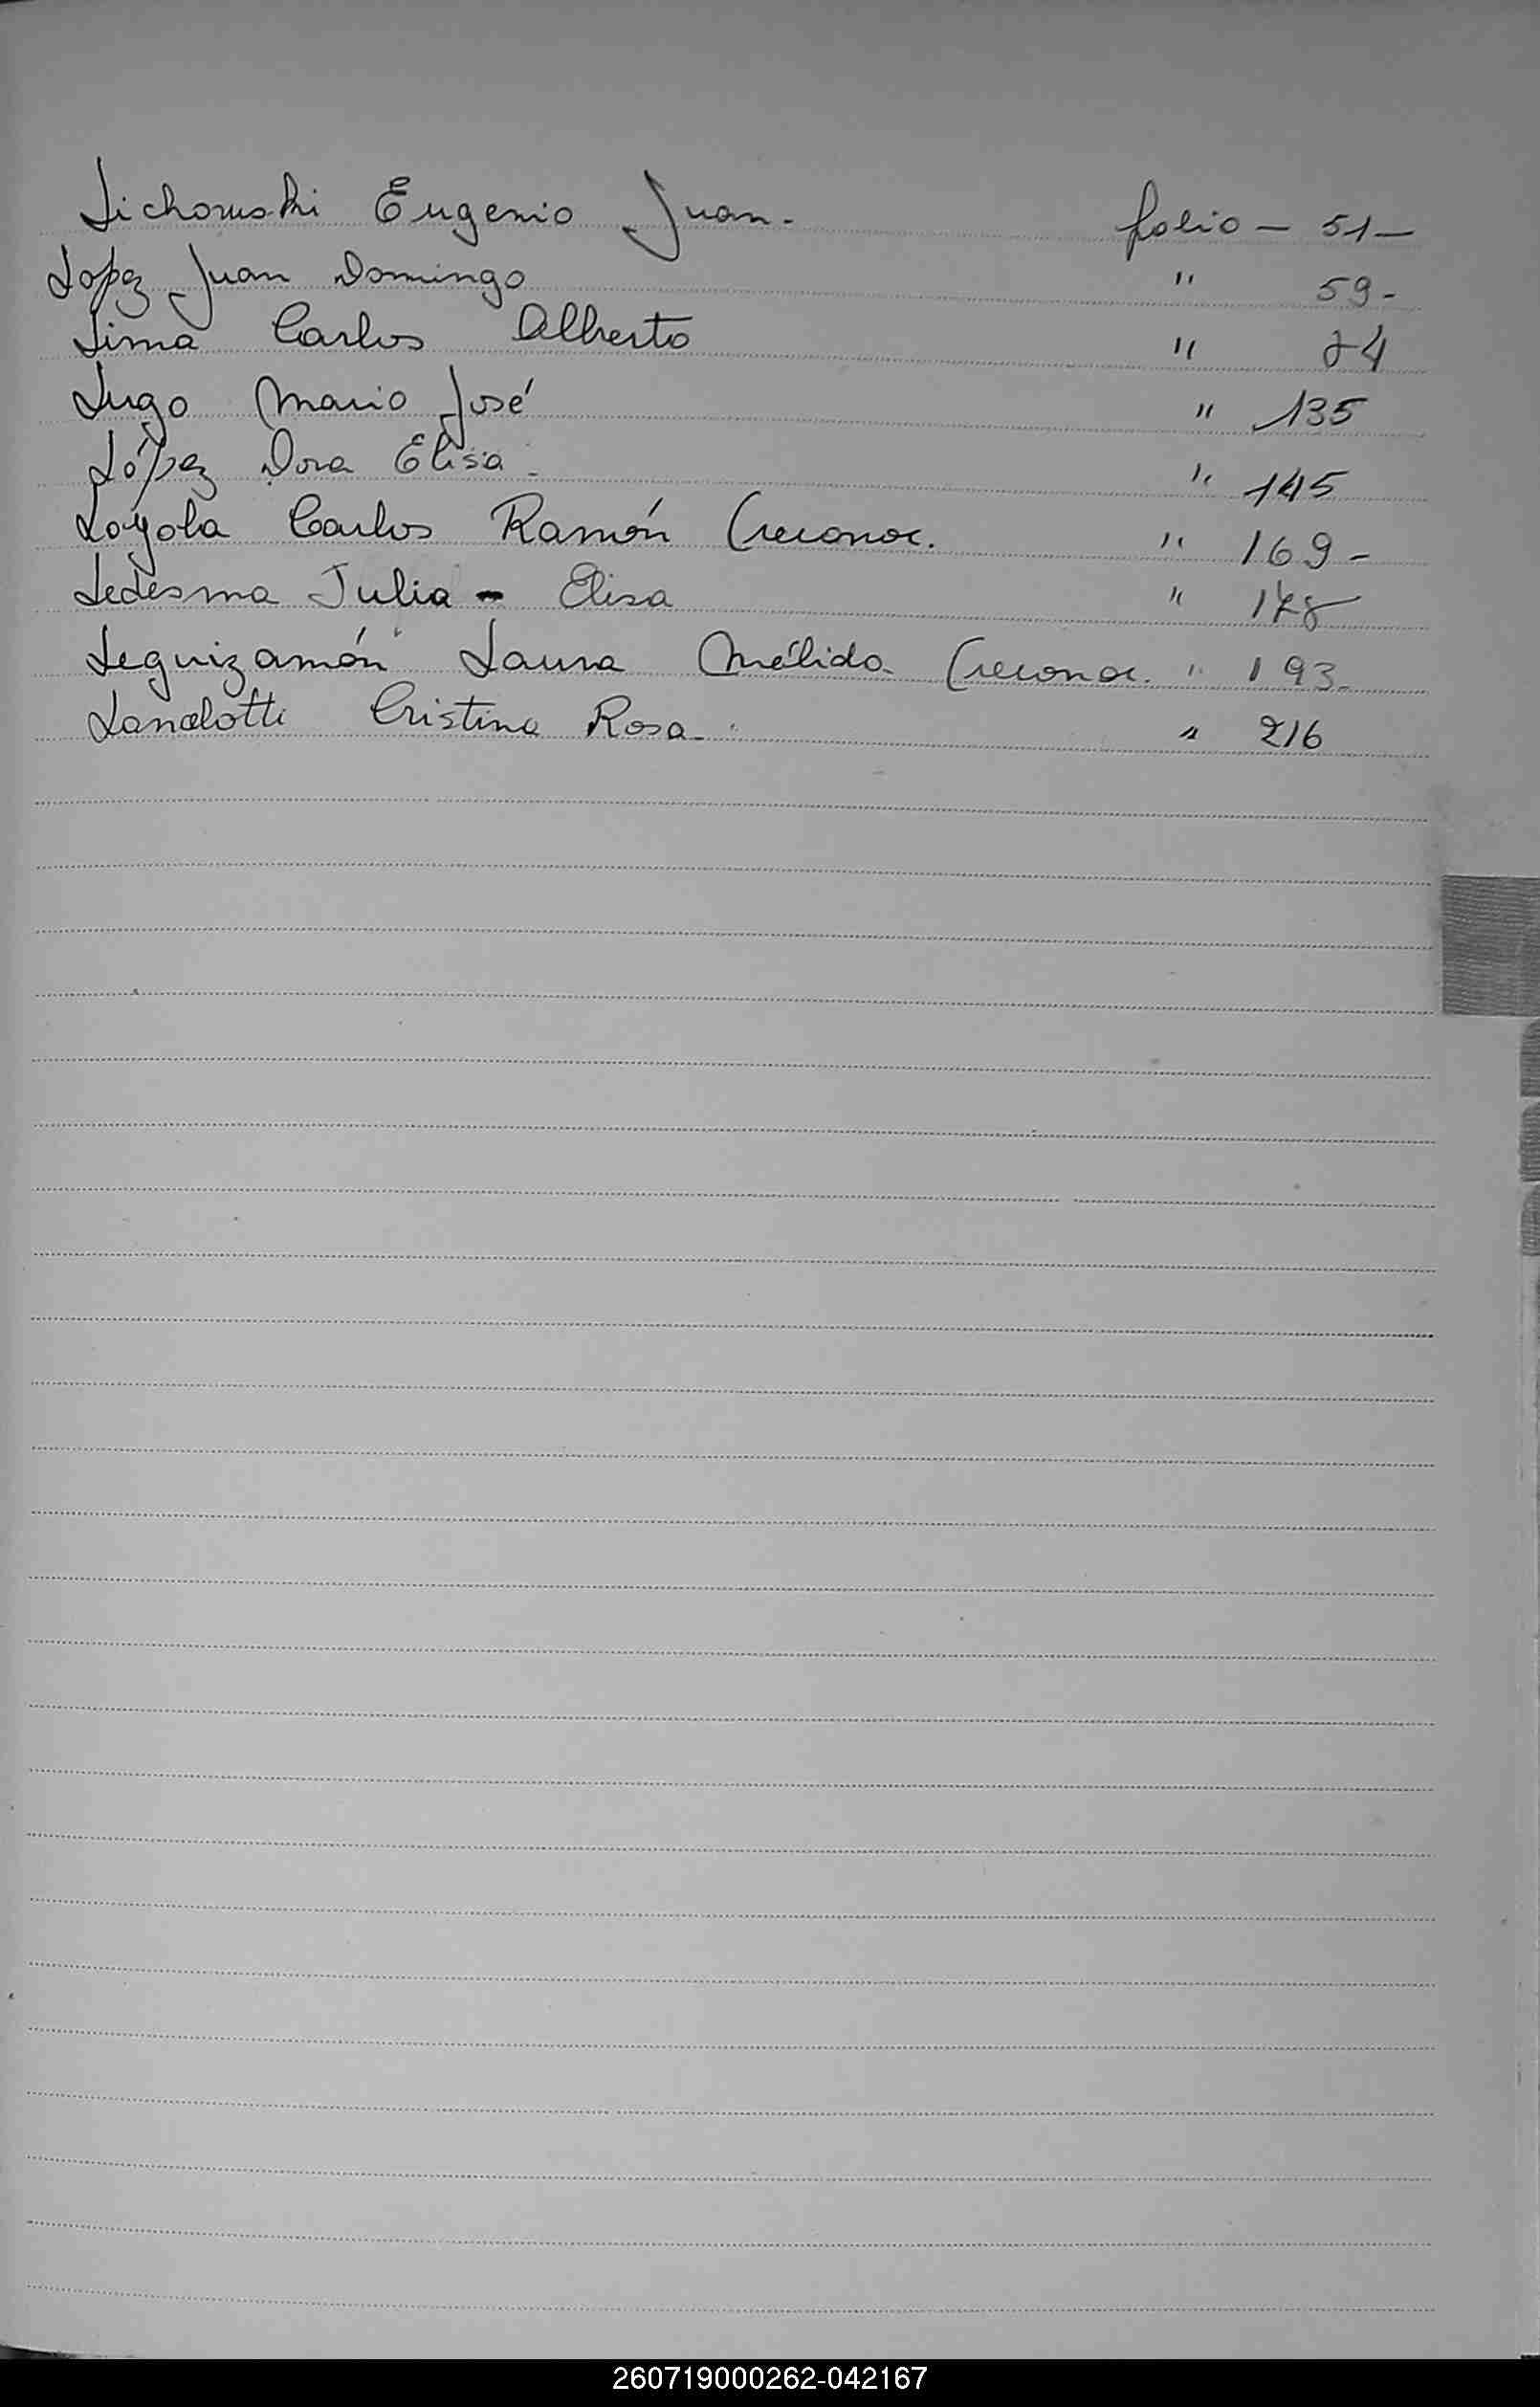 Lichowski Eugenio Juan.- folio - 51 -
Lopez Juan Domingo " 59 -
Lima Carlos Alberto "
Lugo Mario José " 135
López Dora Elisa - " 145
Loyola Carlos Ramón (reconoc. " 169 -
Ledesma Julia - Elisa " 178
Leguizamón Laura Mélida (reconoc. " 193 -
Cristina Rosa - " 216
260719000262-042167